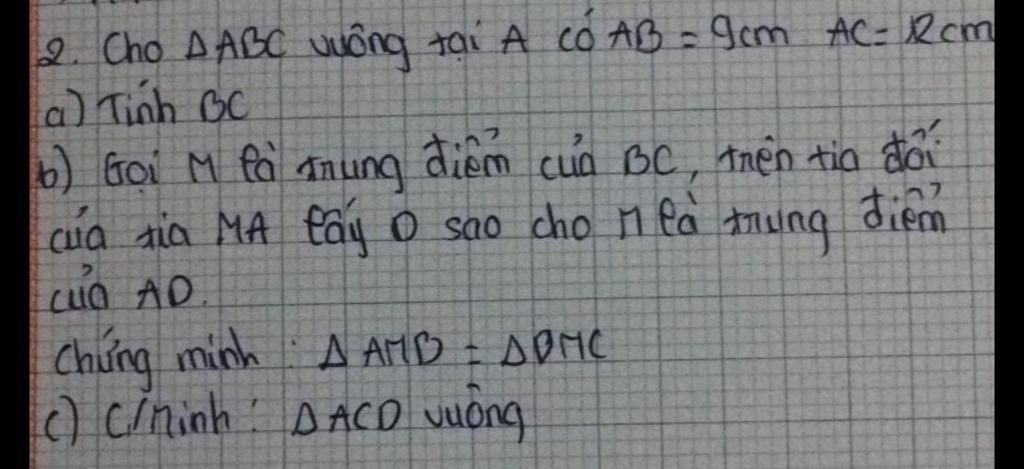 2. Cho ΔABC vuông tại A có AB = 9cm AC = 12cm
a) Tính BC
b) Gọi M là trung điểm của BC, trên tia đối
của tia MA lấy D sao cho M là trung điểm
của AD.
Chứng minh : ΔAMB = ΔDMC
c) C/minh : ΔACD vuông